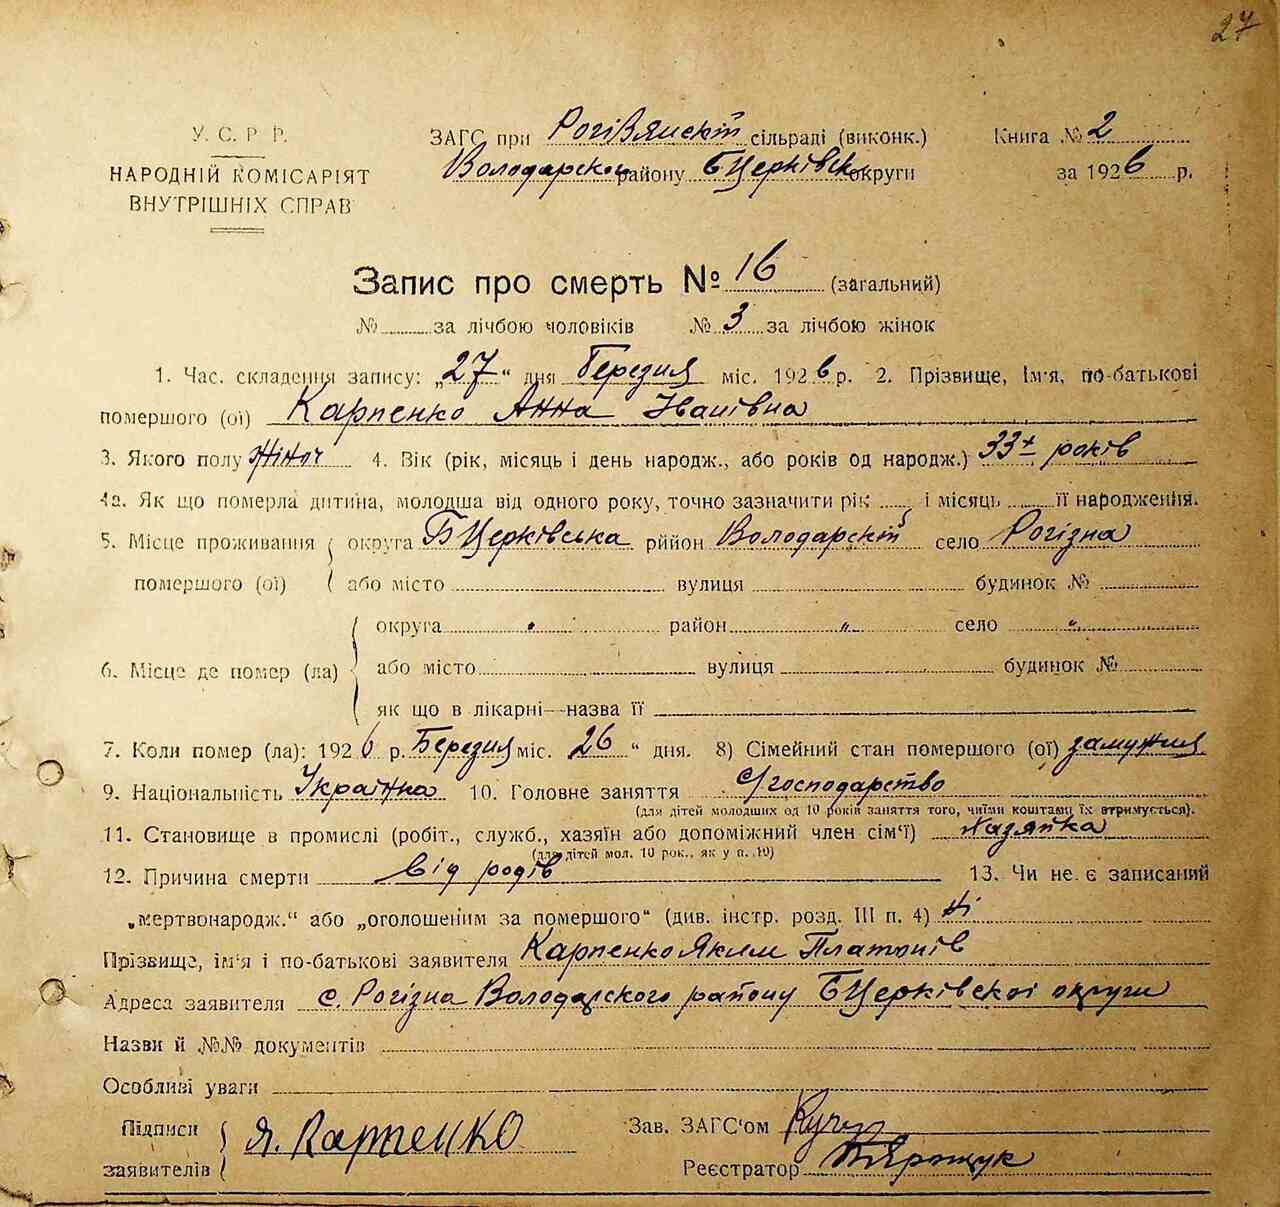 27
У. С. Р Р.
НАРОДНІЙ КОМІСАРІЯТ
ВНУТРІШНІХ СПРАВ
ЗАГС при Рогізянскій сільраді (виконк.)
Володарского району БЦерківск округи
Книга № 2
за 1926 р.
Запис про смерть № 16 (загальний)
№ за лічбою чоловіків № 3 за лічбою жінок
1. Час. складення запису: „27" дня березня міс. 1926 р. 2. Прізвище, ім'я, по-батькові
помершого (ої) Карпенко Анна Іванівна
3. Якого полу жіноч 4. Вік (рік, місяць і день народж., або років од народж.) 33х років
4а. Як що померла дитина, молодша від одного року, точно зазначити рік і місяць її народження.
5. Місце проживання помершого (ої) округа БЦерківська рййон Володарскій село Рогізна
або місто вулиця будинок №
6. Місце де помер (ла) округа " район " село "
або місто вулиця будинок №
як що в лікарні—назва її
7. Коли помер (ла): 1926 р. Березня міс. 26 " дня. 8) Сімейний стан помершого (ої) замужня
9. Національність Українка 10. Головне заняття С/господарство
(для дітей молодших од 10 років заняття того, чиїми коштами їх втримується).
11. Становище в промислі (робіт., служб., хазяїн або допоміжний член сім'ї) хазяйка
(для дітей мол. 10 рок., як у п. 10)
12. Причина смерти від родів 13. Чи не є записаний
„мертвонародж." або „оголошеним за помершого" (див. інстр. розд. III п. 4) ні
Прізвище, ім'я і по-батькові заявителя Карпенко Яким Платонів
Адреса заявителя с. Рогізна Володарского району БЦерківскої округи
Назви й №№ документів
Особливі уваги
Підписи заявителів Я. Карпенко
Зав. ЗАГС'ом
Реєстратор